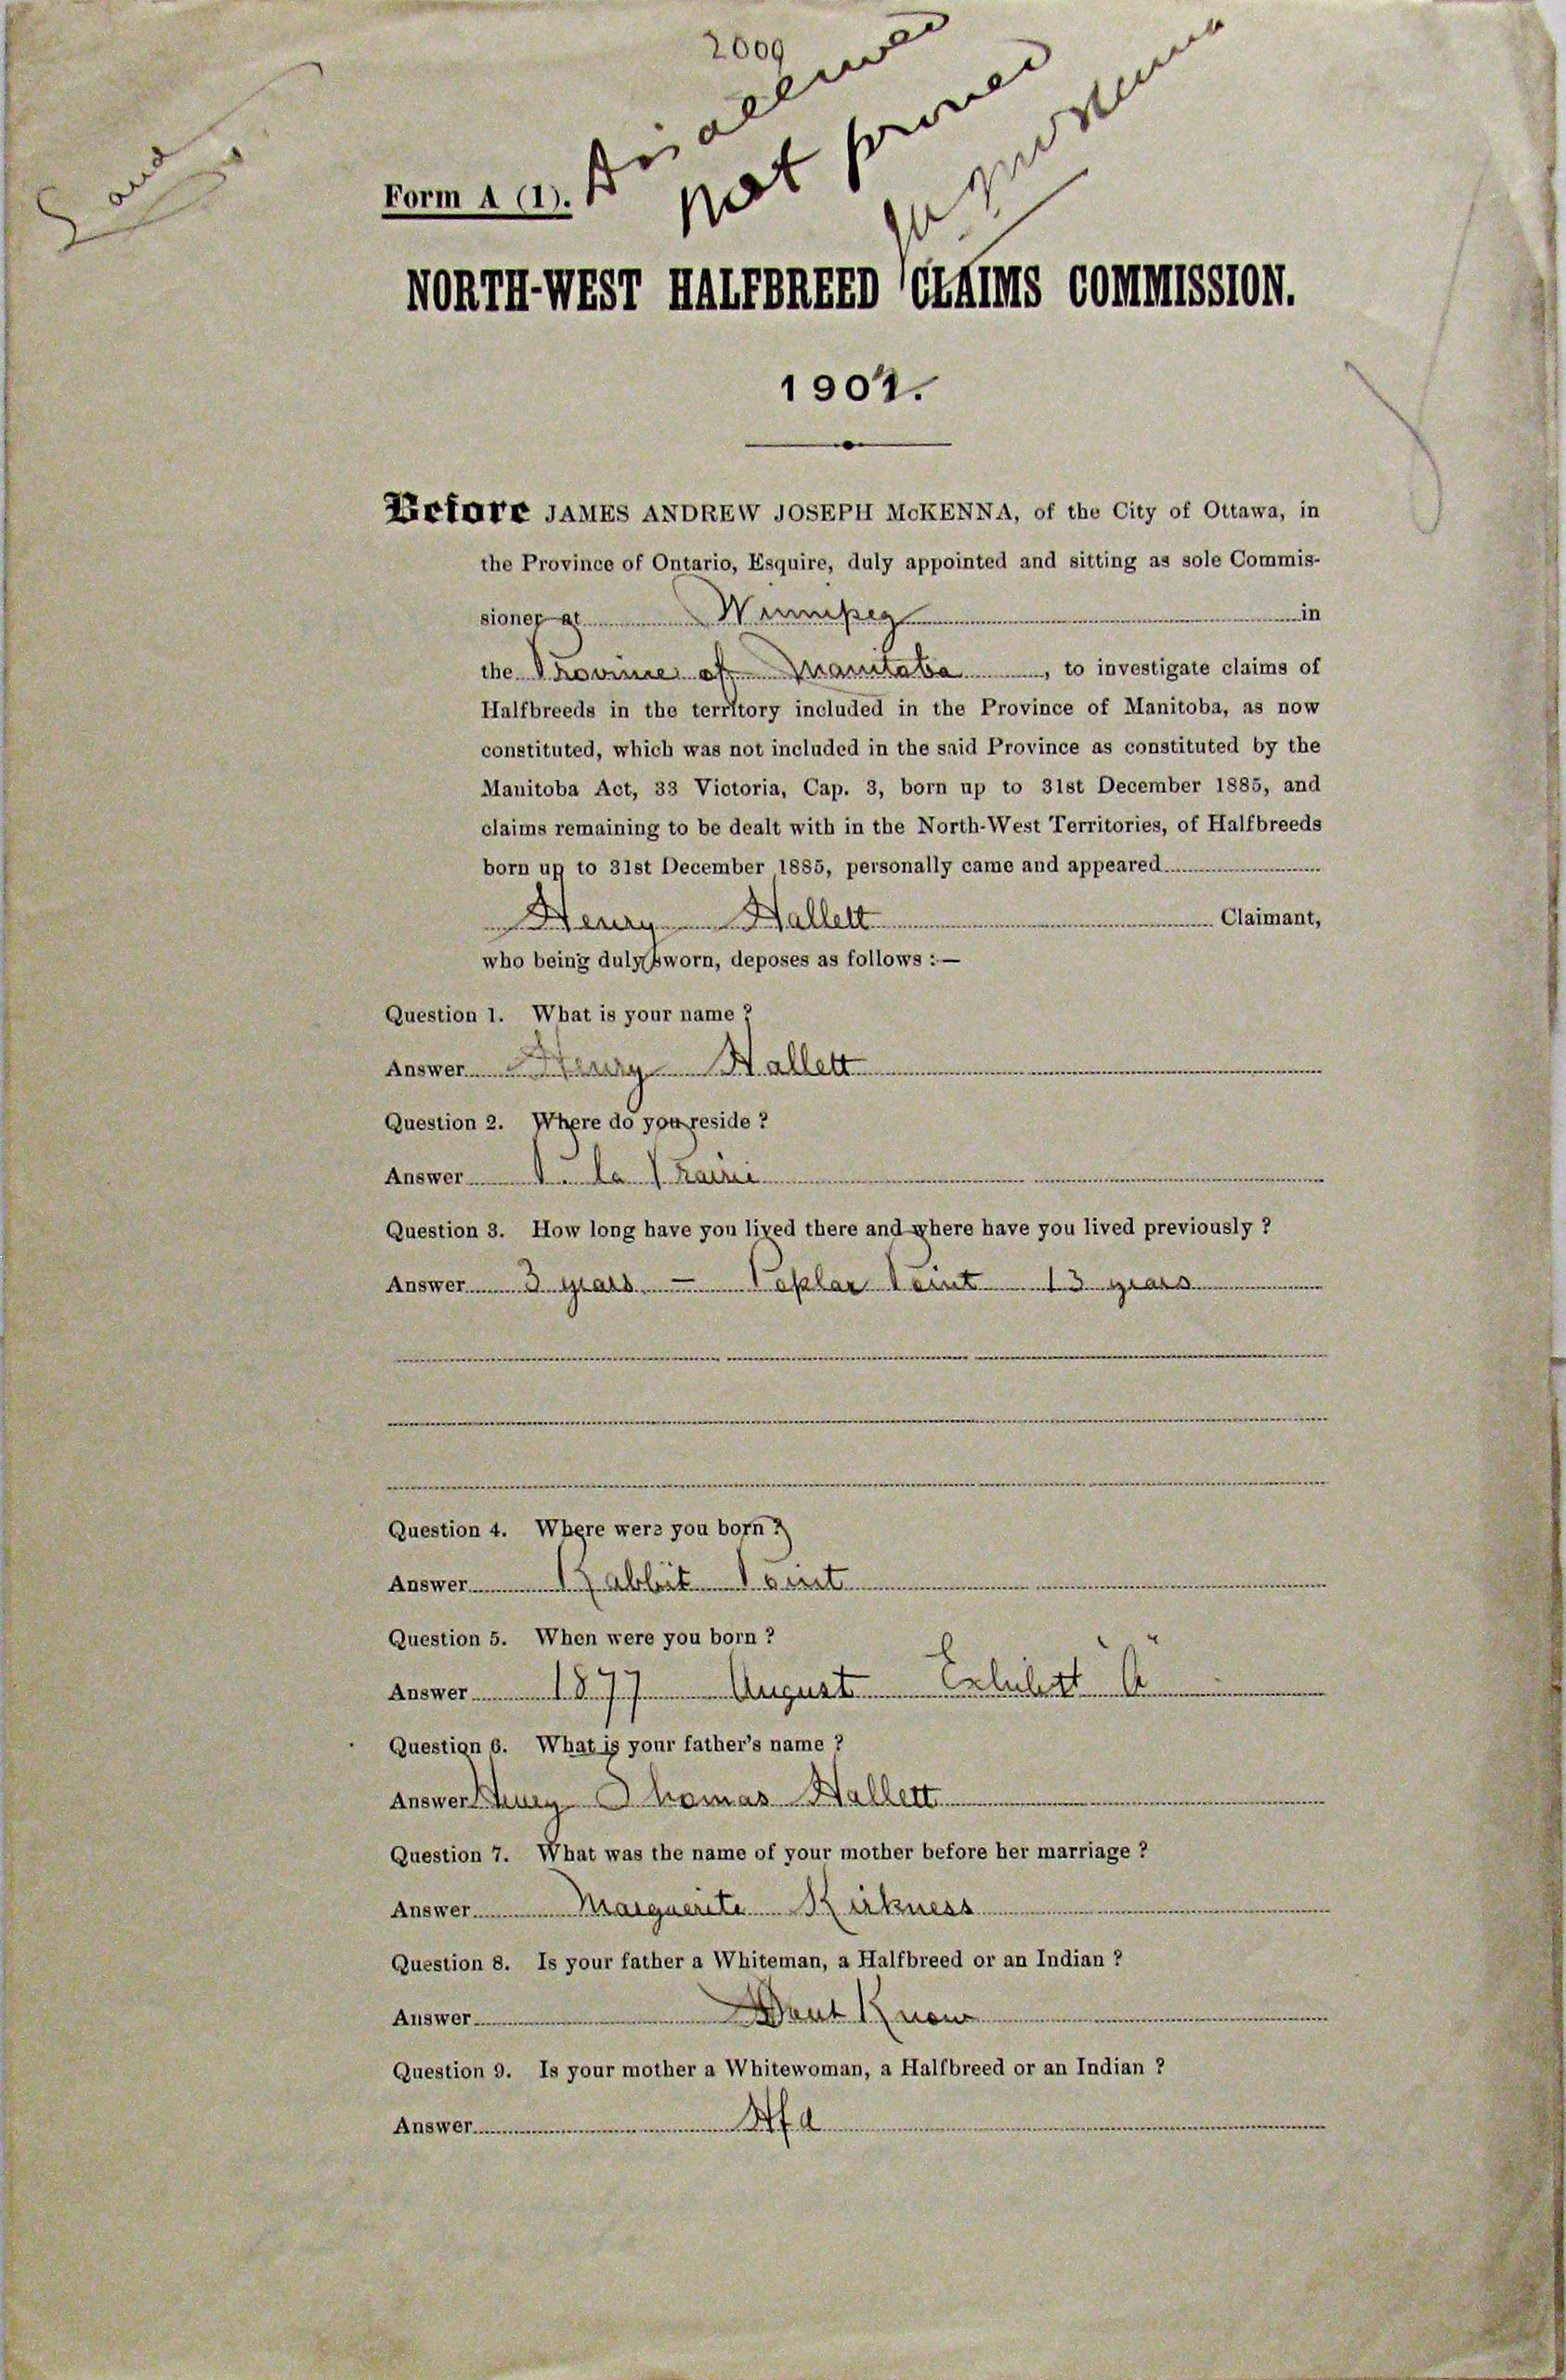 2009
Disallowed
not proved
Form A (1).
NORTH-WEST HALFBREED CLAIMS COMMISSION.
1901.
Before JAMES ANDREW JOSEPH McKENNA, of the City of Ottawa, in
the Province of Ontario, Esquire, duly appointed and sitting as sole Commis-
sioner at Winnipeg in
the Province of Manitoba, to investigate claims of
Halfbreeds in the territory included in the Province of Manitoba, as now
constituted, which was not included in the said Province as constituted by the
Manitoba Act, 33 Victoria, Cap. 3, born up to 31st December 1885, and
claims remaining to be dealt with in the North-West Territories, of Halfbreeds
born up to 31st December 1885, personally came and appeared
Henry Hallett Claimant,
who being duly sworn, deposes as follows :—
Question 1. What is your name ?
Answer Henry Hallett
Question 2. Where do you reside ?
Answer P. la Prairie
Question 3. How long have you lived there and where have you lived previously ?
Answer 3 years — Poplar Point 13 years
Question 4. Where were you born ?
Answer Rabbit Point
Question 5. When were you born ?
Answer 1877 August Exhibit "A"
Question 6. What is your father's name ?
Answer Henry Thomas Hallett
Question 7. What was the name of your mother before her marriage ?
Answer Marguerite Kirkness
Question 8. Is your father a Whiteman, a Halfbreed or an Indian ?
Answer Dont Know
Question 9. Is your mother a Whitewoman, a Halfbreed or an Indian ?
Answer Hfd